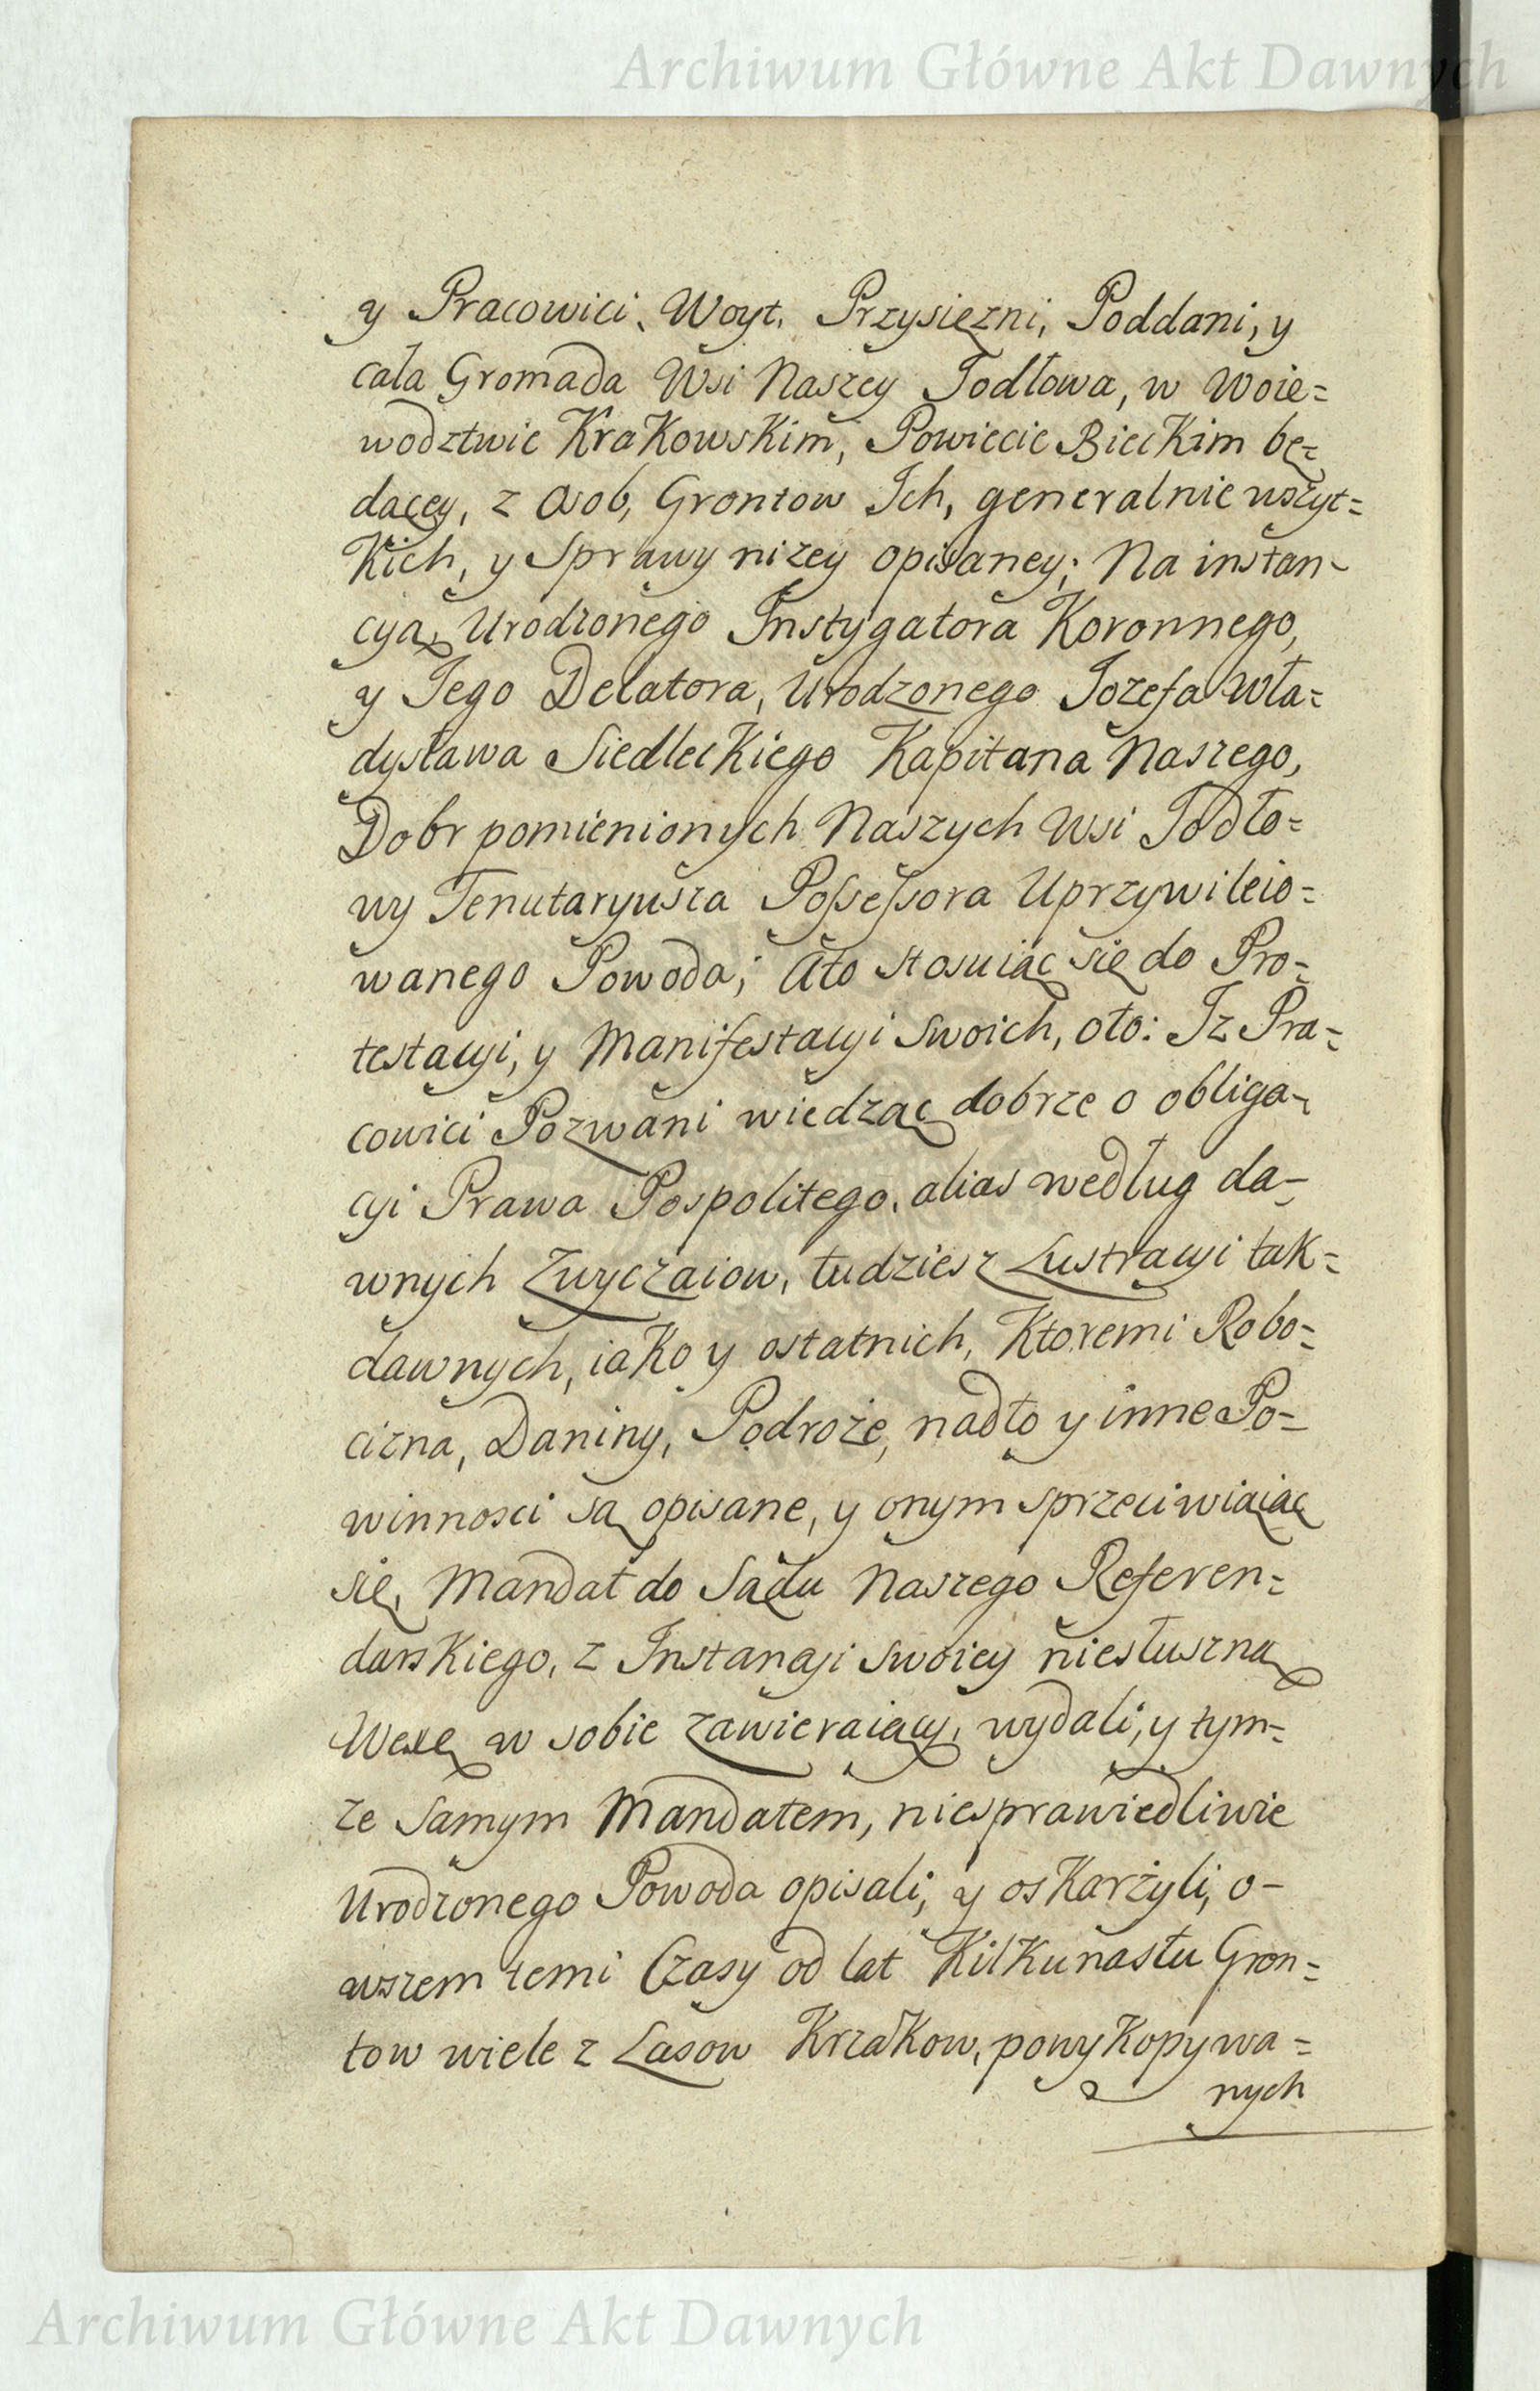 Archiwum Główne Akt Dawnych
y Pracowici, Woyt, Przysiężni, Poddani, y
cała Gromada Wsi Naszey Jodłowa, w Woie=
wodztwie Krakowskim, Powiecie Bieckim bę=
dącey, z Osob, Grontow Ich, generalnie wszyt=
kich, y Sprawy niżey opisaney; Na instan-
cyą Urodzonego Instygatora Koronnego,
y Jego Delatora, Urodzonego Jozefa Wła=
dysława Siedleckiego Kapitana Naszego,
Dobr pomienionych Naszych Wsi Jodło=
wy Tenutaryusza Possessora Uprzywileio=
wanego Powoda; Ato stosuiąc się do Pro=
testacyi, y Manifestacyi swoich, oto: Iz Pra=
cowici Pozwani wiedząc dobrze o obliga=
cyi Prawa Pospolitego, alias według da=
wnych Zwyczaiow, tudziesz Lustracyi tak=
dawnych, iako y ostatnich, Ktoremi Robo=
cizna, Daniny, Podroże, nadto y inne Po=
winnosci są opisane, y onym sprzeciwiaiąc
się, Mandat do Sądu Naszego Referen=
darskiego, z Instancyi swoiey niesłuszną
Wexę w sobie zawieraiący, wydali, y tym=
ze samym Mandatem, niesprawiedliwie
Urodzonego Powoda opisali, y oskarżyli, o=
wszem temi Czasy od lat Kilkunastu Gron=
tow wiele z Lasow Krzakow, powykopywa=
nych
Archiwum Główne Akt Dawnych